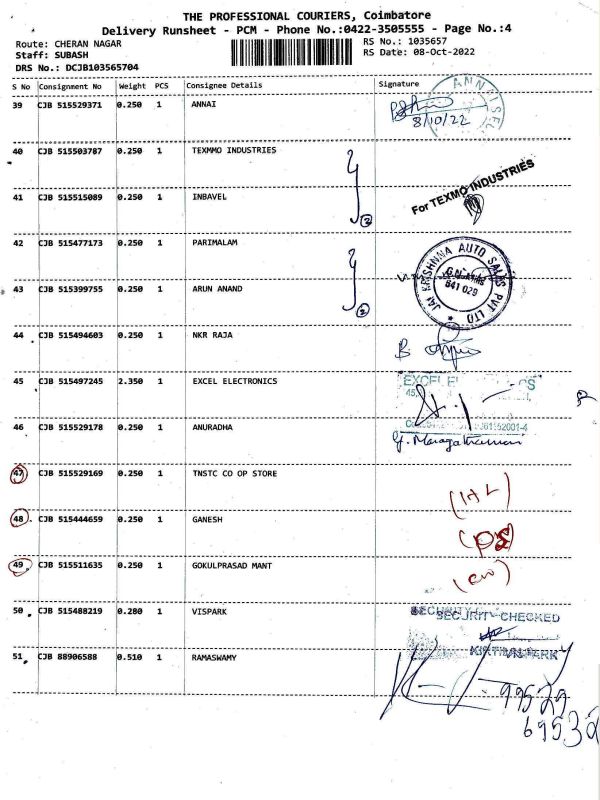 THE PROFESSIONAL COURIERS, Coimbatore
Delivery Runsheet - PCM - Phone No.:0422-3505555 - Page No.:4
Route: CHERAN NAGAR
RS No.: 1035657
Staff: SUBASH
RS Date: 08-Oct-2022
DRS No.: DCJB103565704
S No Consignment No Weight PCS Consignee Details Signature
39 CJB 515529371 0.250 1 ANNAI
8/10/22
40 CJB 515503787 0.250 1 TEXMMO INDUSTRIES
For TEXMO INDUSTRIES
41 CJB 515515089 0.250 1 INBAVEL
2
42 CJB 515477173 0.250 1 PARIMALAM
JAI KRISHNNA AUTO SALES PVT LTD
641 029
43 CJB 515399755 0.250 1 ARUN ANAND
2
44 CJB 515494603 0.250 1 NKR RAJA
45 CJB 515497245 2.350 1 EXCEL ELECTRONICS
46 CJB 515529178 0.250 1 ANURADHA
47 CJB 515529169 0.250 1 TNSTC CO OP STORE
48 CJB 515444659 0.250 1 GANESH
49 CJB 515511635 0.250 1 GOKULPRASAD MANT
50 CJB 515488219 0.280 1 VISPARK
SECURITY CHECKED
51 CJB 88906588 0.510 1 RAMASWAMY
99529
69532